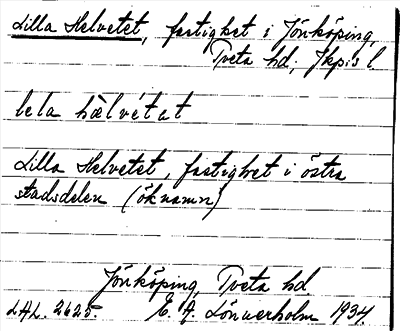 Lilla Helvetet, fastighet i Jönköping,
Tveta hd, Jkp:s l
lela hèlvétat
Lilla Helvetet, fastighet i östra
stadsdelen (öknamn)
Jönköping, Tveta hd
LAL. 2625. E. A. Lönnerholm 1934.